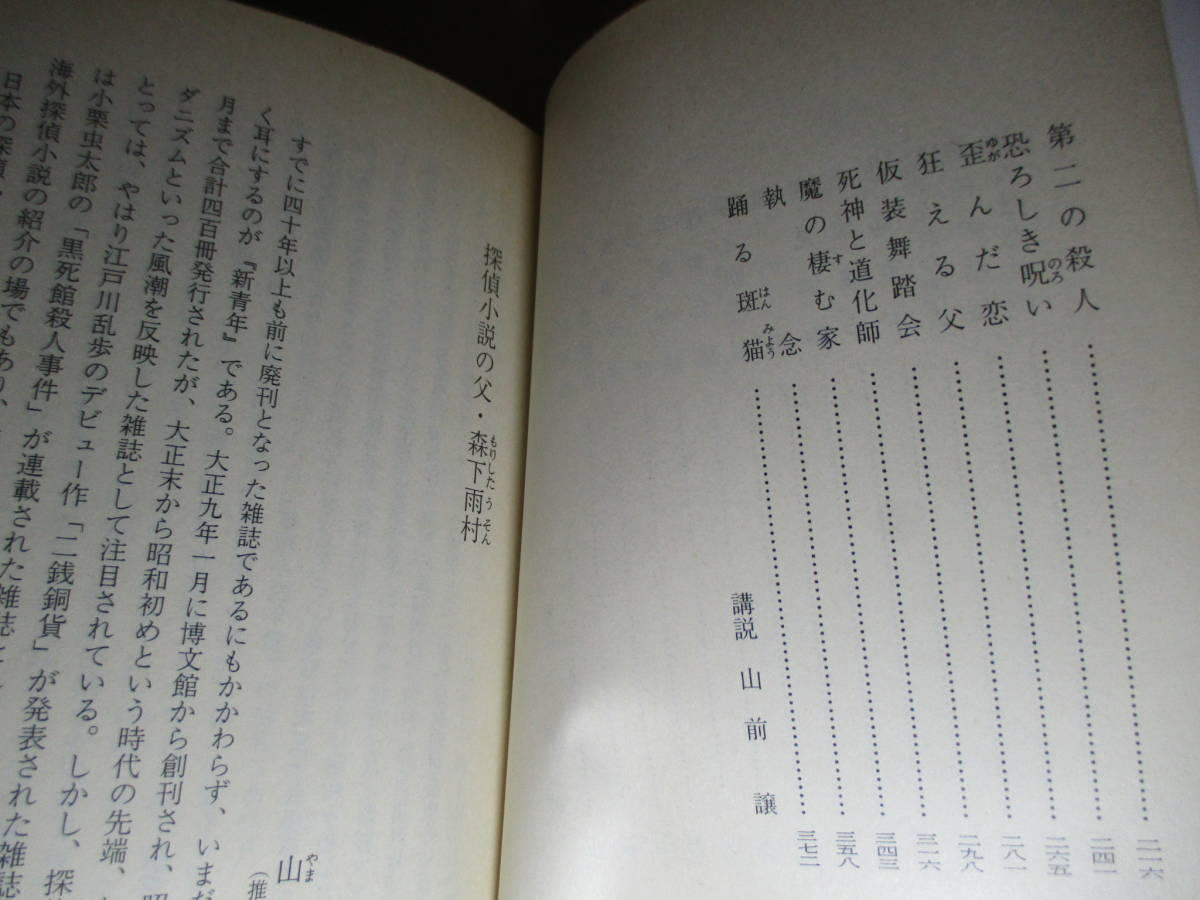 第二の殺人……………………二一六
恐ろしき呪い……………………二四一
歪んだ恋……………………二六五
狂える父……………………二八一
仮装舞踏会……………………二九八
死神と道化師……………………三一六
魔の棲む家……………………三四三
執念……………………三五八
踊る斑猫……………………三七二
講説 山前 譲
探偵小説の父・森下雨村
山
(推
すでに四十年以上も前に廃刊となった雑誌であるにもかかわらず、いまだ
く耳にするのが『新青年』である。大正九年一月に博文館から創刊され、昭
月まで合計四百冊発行されたが、大正末から昭和初めという時代の先端、
ダニズムといった風潮を反映した雑誌として注目されている。しかし、探
とっては、やはり江戸川乱歩のデビュー作「二銭銅貨」が発表された雑誌
は小栗虫太郎の「黒死館殺人事件」が連載された雑誌
海外探偵小説の紹介の場でもあり、
日本の探偵